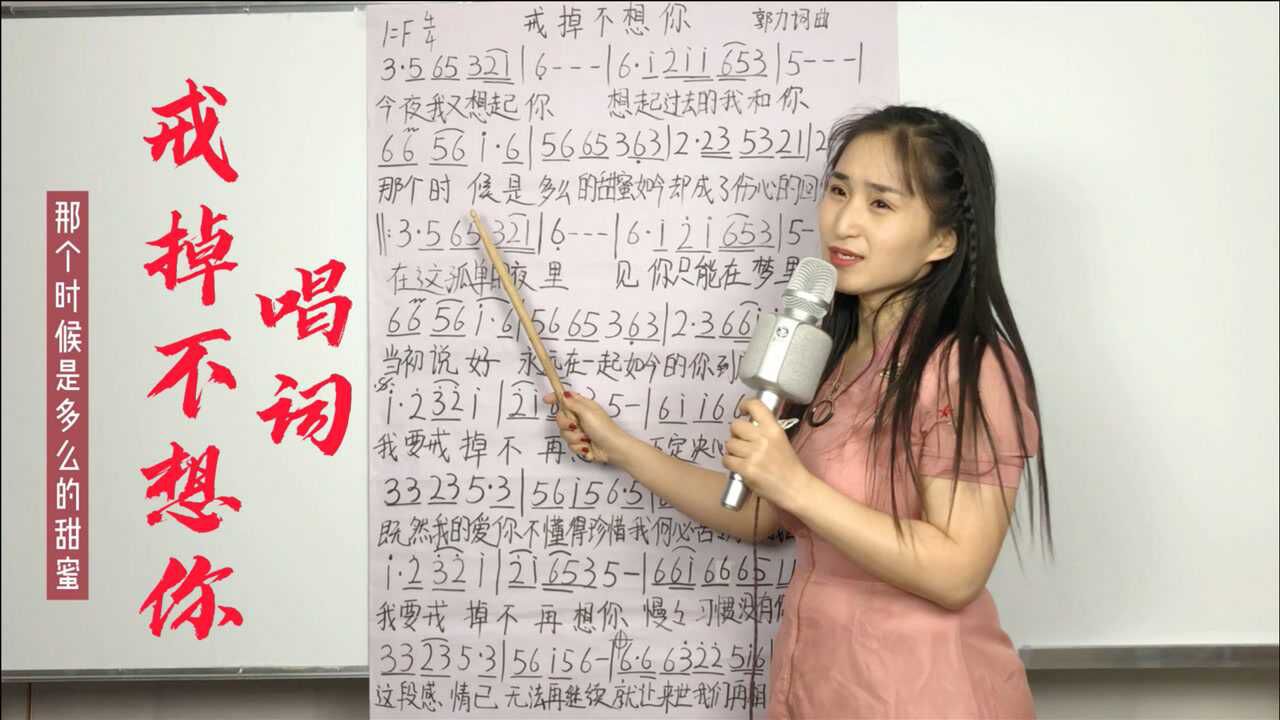 戒掉不想你
唱词
那个时候是多么的甜蜜
戒掉不想你
郭力词曲
1=F 4/4
3·5 65 321 | 6--- | 6·i 2ii 653 | 5---|
今夜我又想起你 想起过去的我和你
66 56 i·6 | 56 65 363 | 2·23 5321 | 2
那个时候是多么的甜蜜如今却成了份心的回
‖:3·5 65 321 | 6--- | 6·i 2i 653 | 5-
在这孤单的夜里 见你只能在梦里
66 56 i·6 | 56 65 363 | 2·3 66i
当初说好 永远在一起如今的你到
i·2 32 i | 2i 5- | 6i i6
我要戒掉不再 定决心
33 23 5·3 | 56 i5 6·5 |
既然我的爱你不懂得珍惜我何必苦
i·2 32 i | 2i 65 35- | 66i 6665
我要戒掉不再想你 慢々习惯没有你
33 23 5·3 | 56 i5 6- | 6·6 6322 5i6
这段感情已无法再继续就让来世我们再相